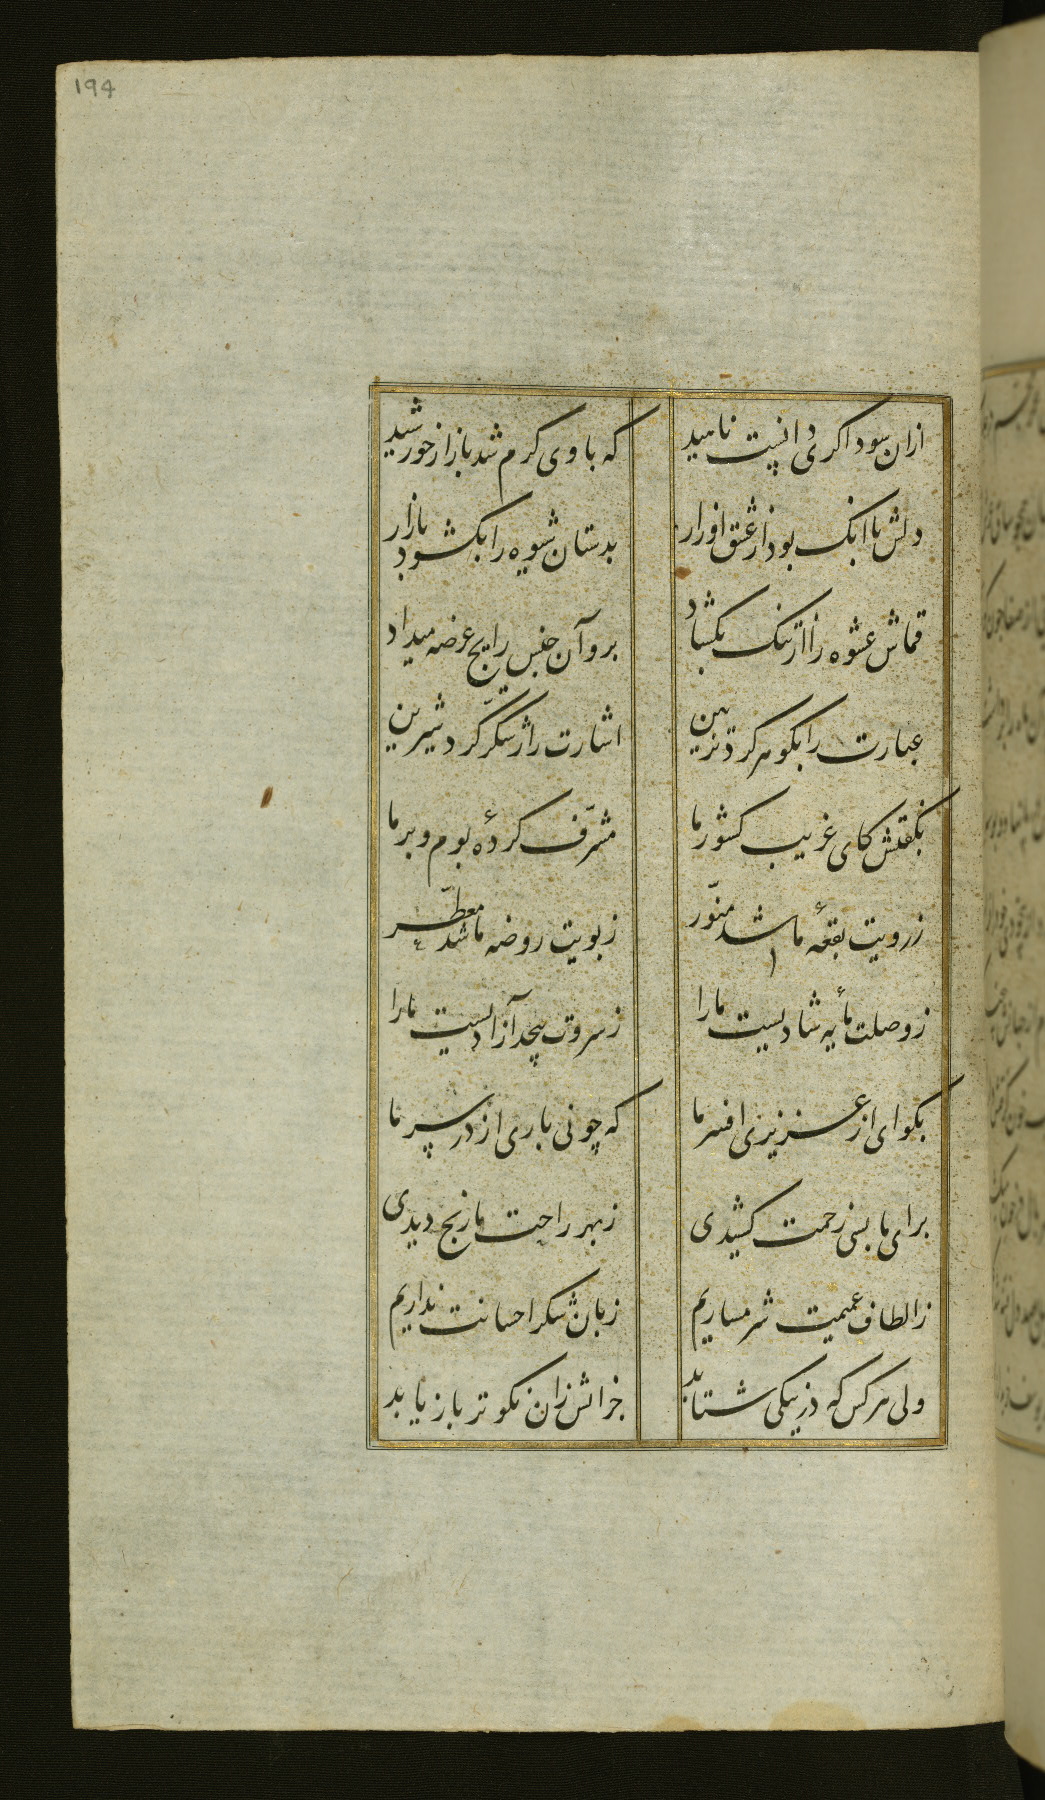 ۱۹۴
ازان سوداگری دانست ناهید
که با وی گرم شد بازار خورشید
دلش با آنک بود از عشق افزار
بدستان شیوه را بکشود بازار
قماش عشوه را از تنک بکشاد
برو آن جنس رایج عرضه میداد
عبارت را بکوهر کرد تزیین
اشارت را ز شکر کرد شیرین
بکفتش کای غریب کشور ما
مشرّف کردهٔ بوم و بر ما
ز رویت بقعهٔ ما شد منوّر
ز بویت روضه ما شد معطّر
ز وصلت مایه شادیست ما را
ز سروت بیخ آزادیست ما را
بکو ای از عزیزی افسر ما
که چونی باری از درد سر ما
برای ما بسی زحمت کشیدی
ز بهر راحت ما رنج دیدی
ز الطاف عمیمت شرمساریم
زبان شکر احسانت نداریم
ولی هر کس که در نیکی شتابد
جزاش زان نکوتر باز یابد